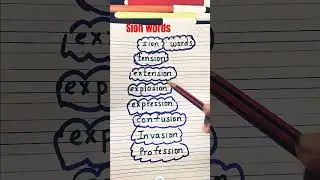 Sion words
sion words
tension
extension
explosion
expression
confusion
Invasion
Profession
exp
exp